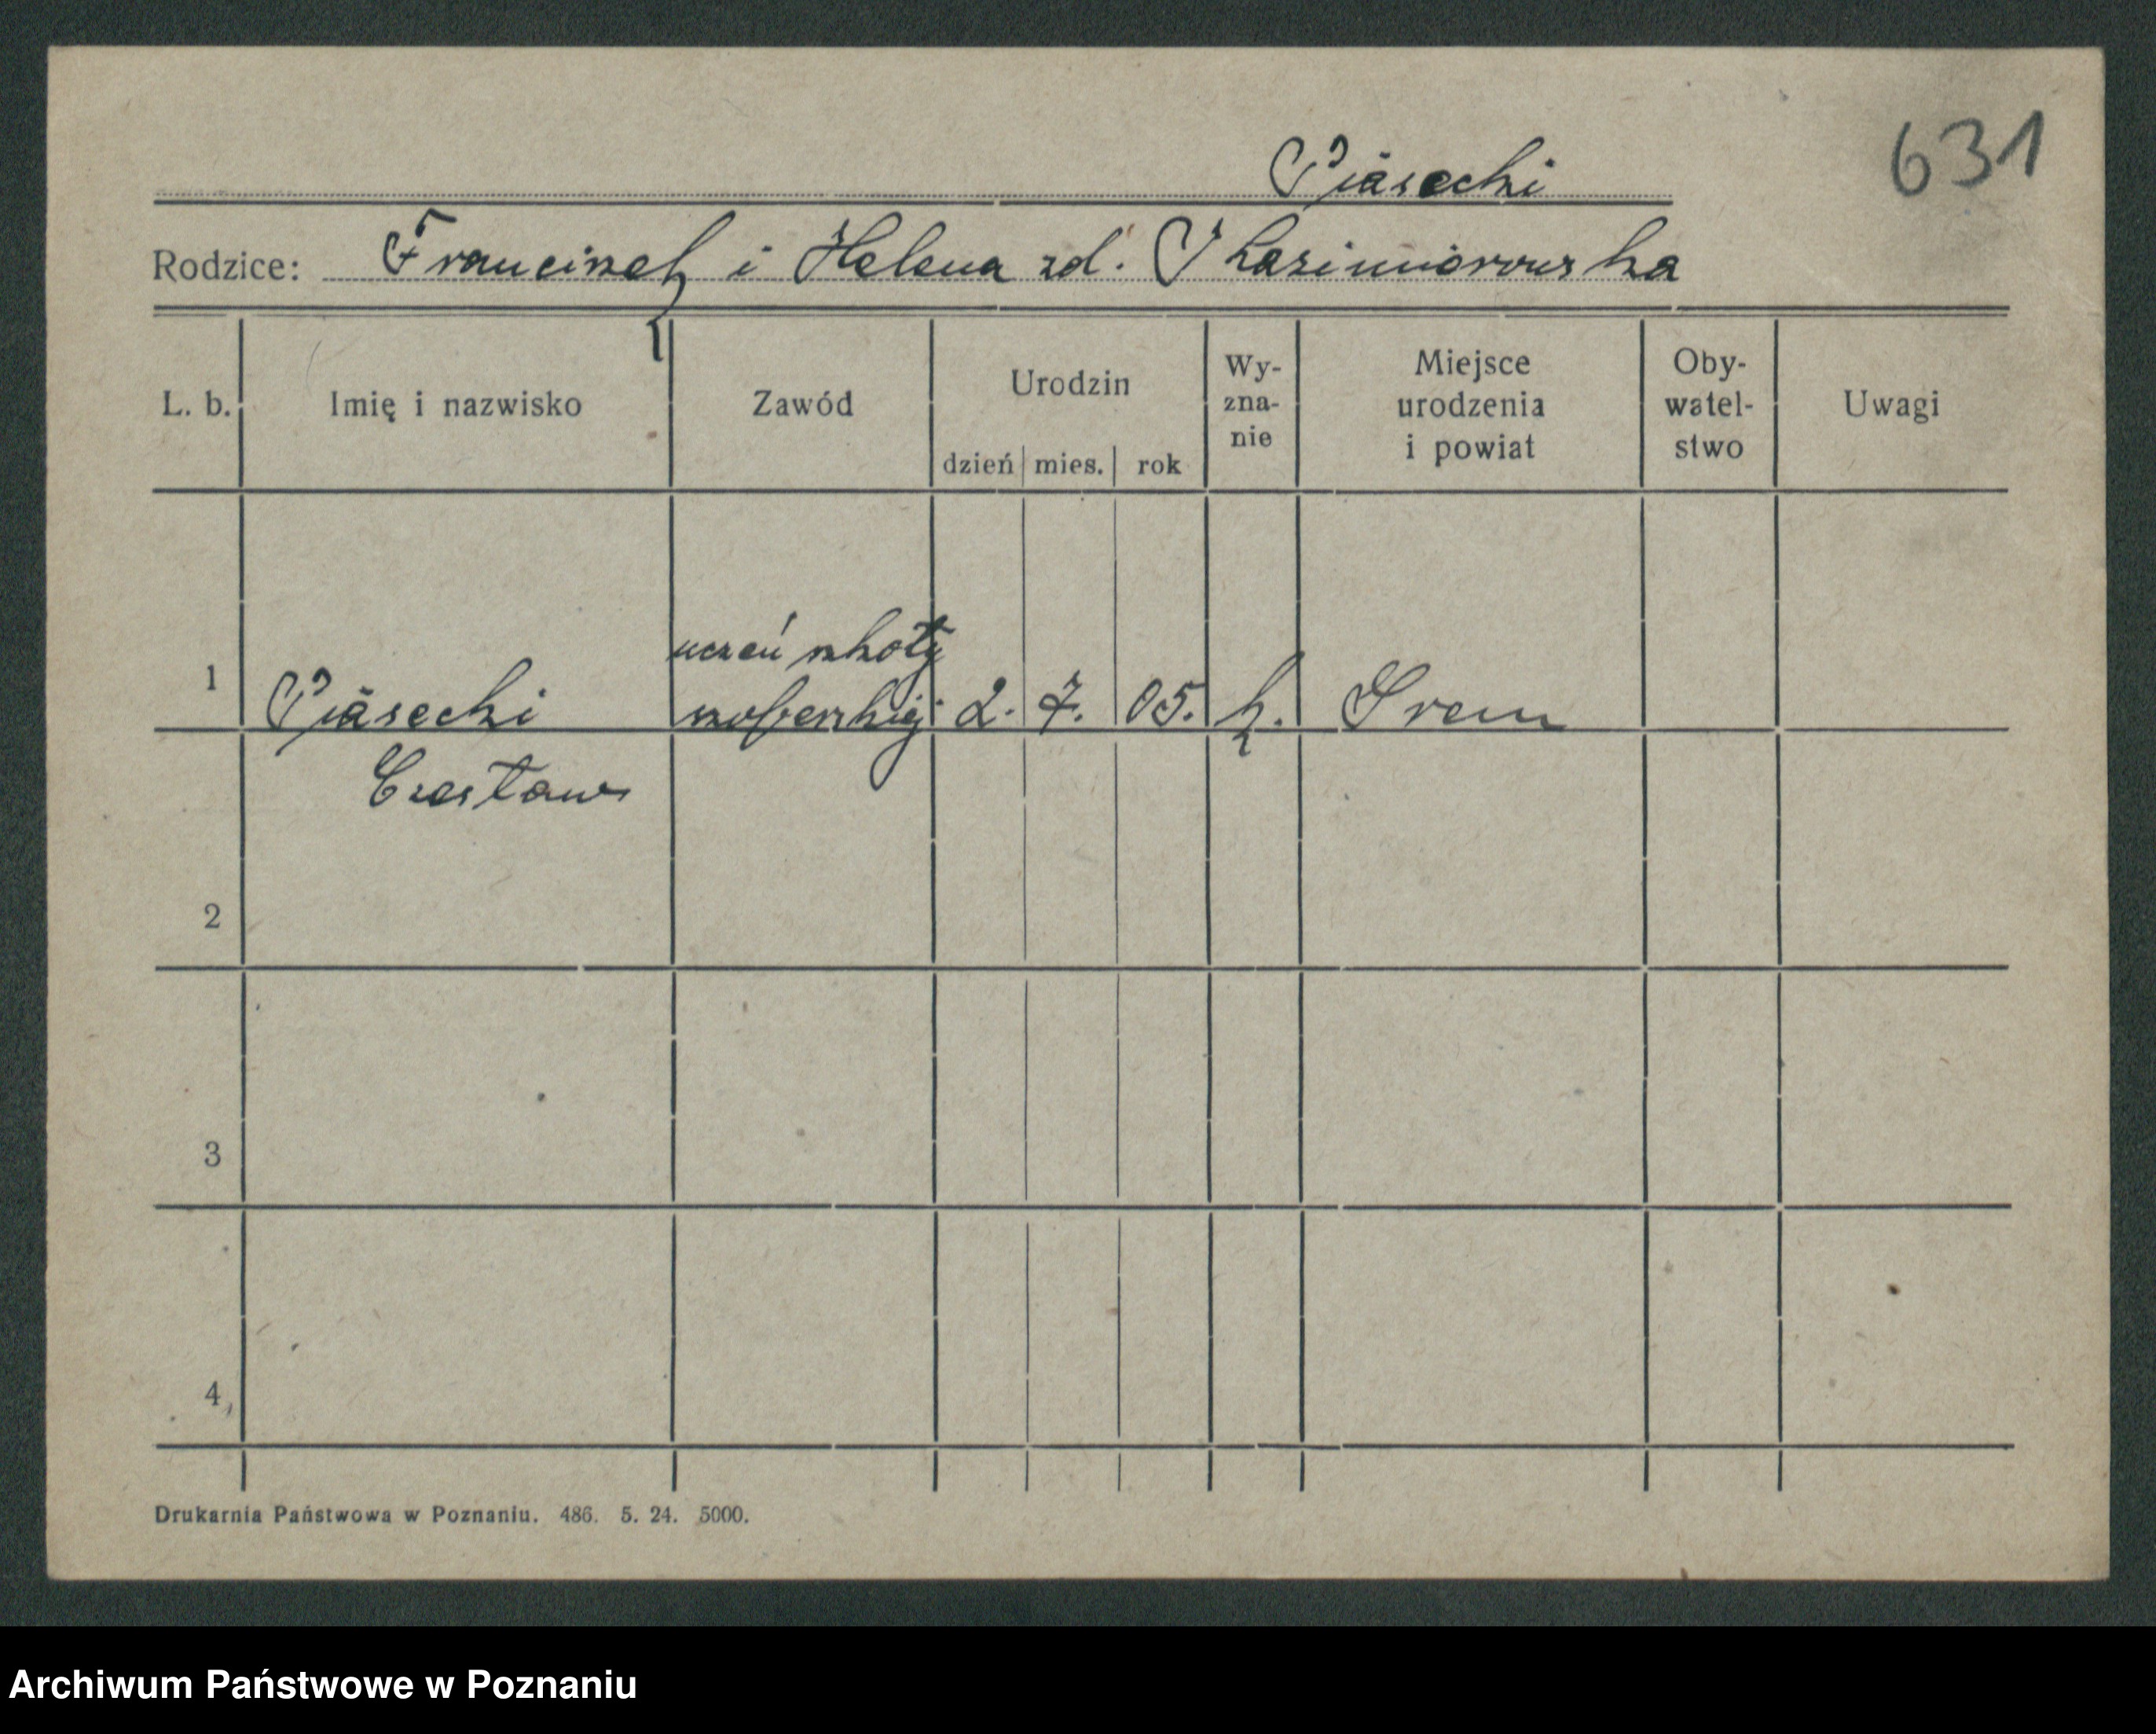 631
Piasecki
Rodzice: Franciszek i Helena zd. Kazimierowska
L. b. Imię i nazwisko Zawód Urodzin dzień mies. rok Wy-zna-nie Miejsce urodzenia i powiat Oby-watel-stwo Uwagi
uczeń szkoły
1 Piasecki szoferskiej 2. 7. 05. k. Śrem
Czesław
2
3
4
Drukarnia Państwowa w Poznaniu. 486. 5. 24. 5000.
Archiwum Państwowe w Poznaniu